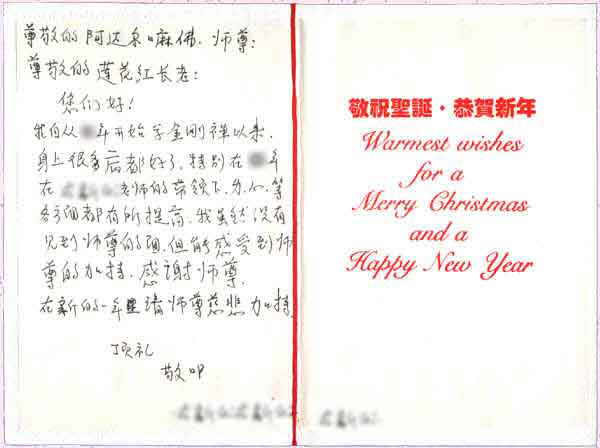 尊敬的阿达尔嘛佛.师尊:
尊敬的莲花红长老:
您们好!
我自从年开始学金刚禅以来,
身上很多病都好了,特别在年
在老师的带领下,身.心.等
各方面都有所提高,我虽然没有
见到师尊的面,但能感受到师
尊的加持,感谢师尊.
在新的一年里请师尊慈悲加持.
顶礼
敬叩
敬祝聖誕·恭賀新年
Warmest wishes
for a
Merry Christmas
and a
Happy New Year